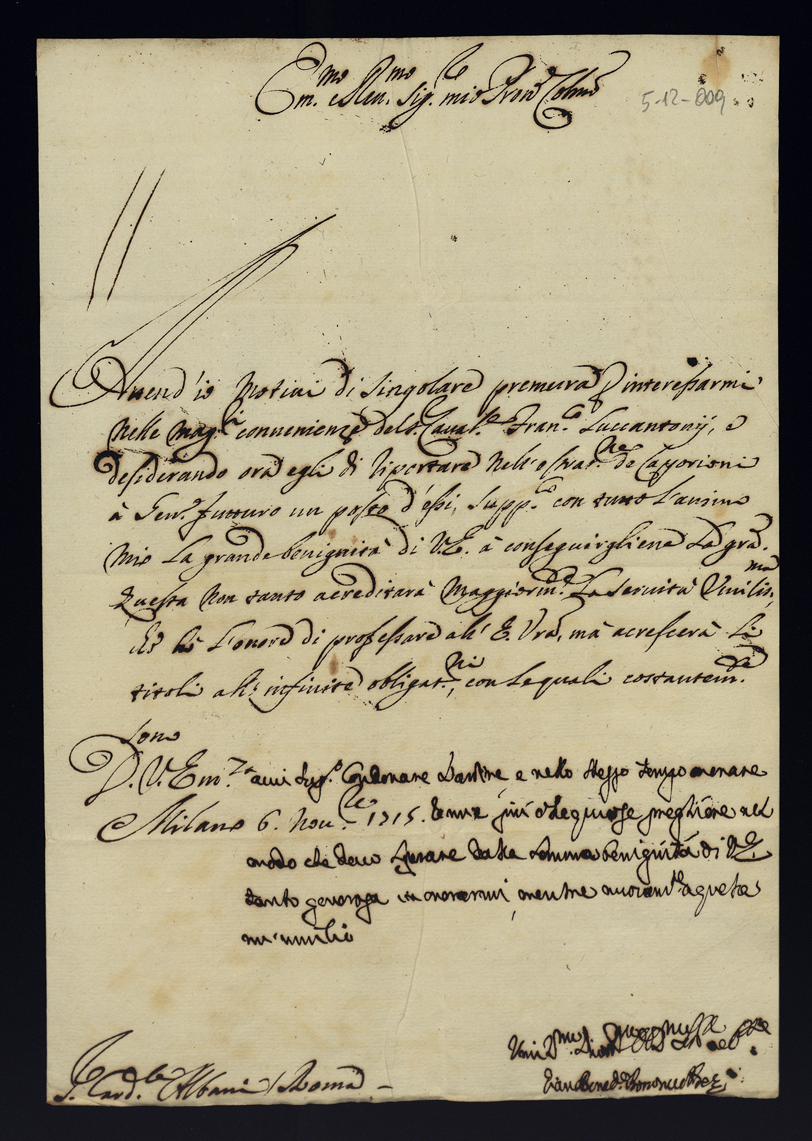 Em.mo e Reu.mo Sig.re mio Pron Colmo
5-12-009
Auend'io motiui di singolare premura d'interessarmi
nelle mag.ri conuenienze del S.r Caual.re Fran.co Luccantonij, e
desiderando ora egli di riportare nell'estrat.ne de Caporioni
à Gen.ro futturo un posto d'essi, supp.co con tutto l'animo
mio la grande benignità di V.E. à conseguirgliene la gra.
Questa non tanto acreditarà maggiorm.te la seruitù Vmilis.ma
che hò l'onore di professare all'E. Vra, mà acrescerà li
titoli all'infinite obligat.ni, con le quali costantem.te
sono
D. V. Em.za condonare e nello stesso tempo
Milano 6. Nou.re 1715. le mie più ossequiose preghiere nel
modo che deuo sperare dalla somma benignità di V.E.
tanto generosa in onorarmi, mentre
mi umilio
S. Card.le Albani / Roma